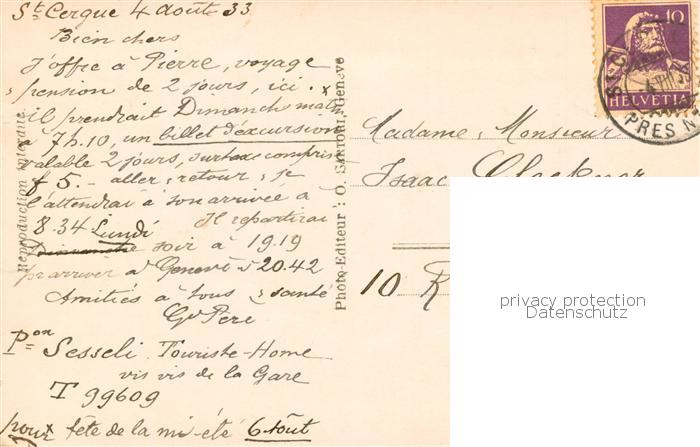 St Cergue 4 août 33
Bien chers
J'offre à Pierre, voyage
pension de 2 jours, ici. x
il prendrait Dimanche matin
à 7h.10, un billet d'éxcursion
valable 2 jours, surtaxe comprise
f 5.- aller & retour; je
l'attendrai à son arrivée à
8.34 Il repartirai
Lundi
Dimanche soir à 19.19
pr arriver à Genevè à 20.42
Amitiés à tous & santé
Gd Père
Pon Sesseli Touriste-Home
vis vis de la Gare
T 99609
pour x fête de la mi-été 6 août
Reproduction interdite
Photo-Editeur: O. SARTORI, Genève
Madame, Monsieur
Isaac
10 R
10
HELVETIA
PRES N
privacy protection
Datenschutz